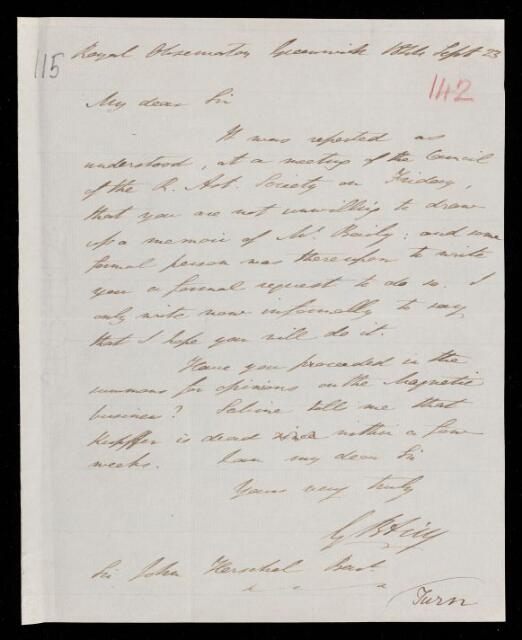 115
Royal Observatory Greenwich 1844 Sept 23
142
My dear Sir
It was reported as
understood, at a meeting of the Council
of the R. Ast. Society on Friday,
that you are not unwilling to draw
up a memoir of Mr. Baily: and some
formal person was thereupon to write
you a formal request to do so. I
only write now informally to say,
that I hope you will do it.
Have you proceeded in the
summons for opinions on the Magnetic
business? Sabine tells me that
Kupffer is dead within a few
weeks. I am my dear Sir
Yours very truly
G B Airy
Sir John Herschel Bart
Turn